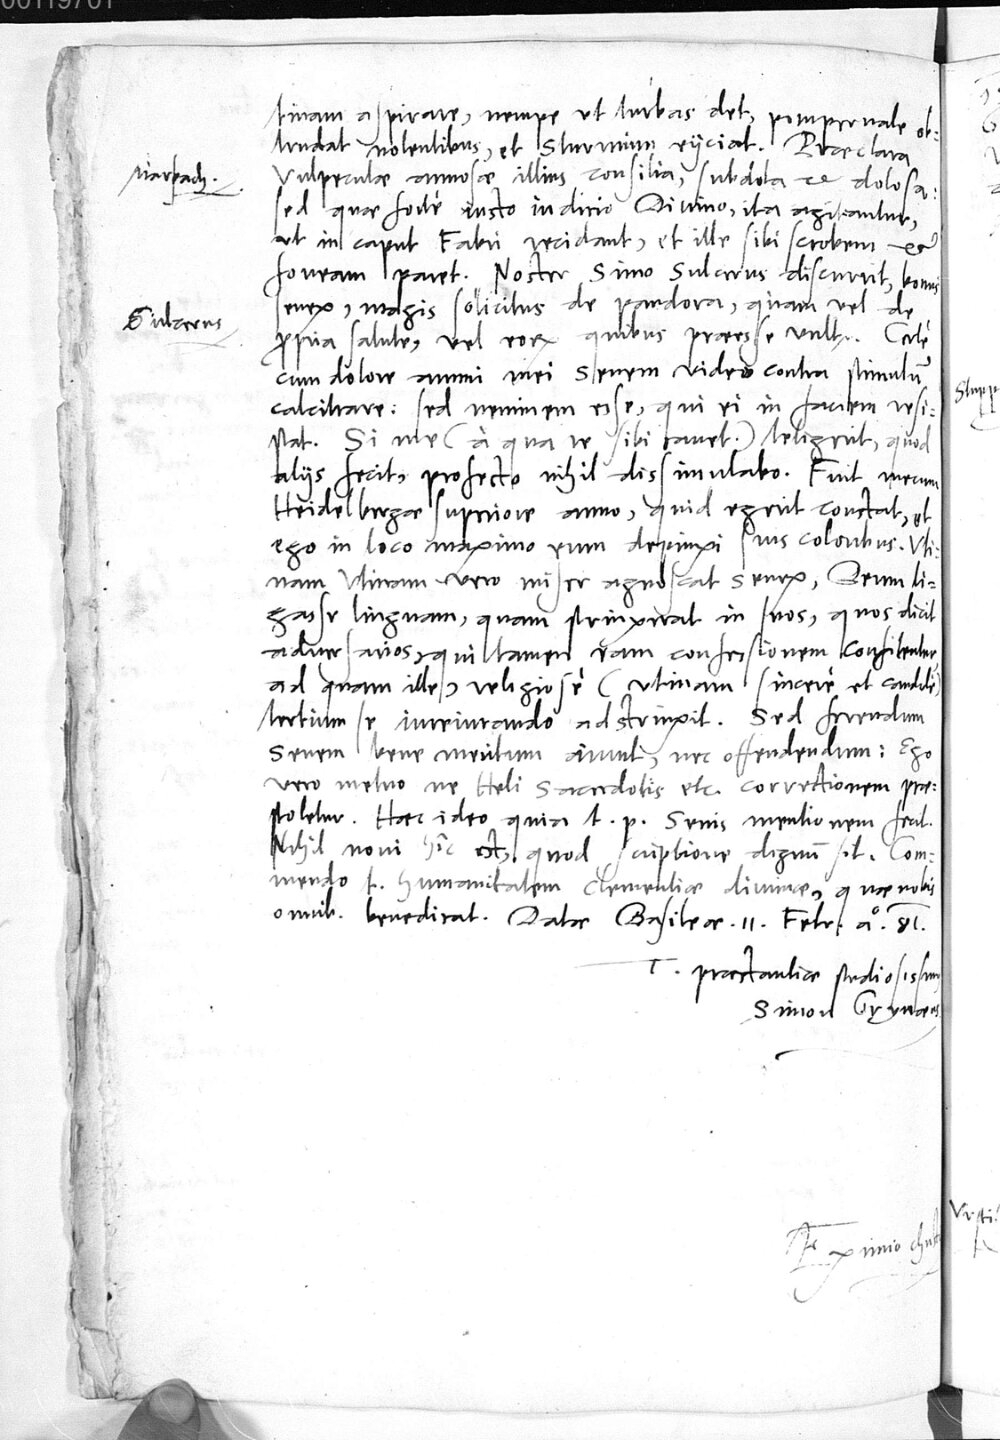 tinam aspirare, nempe ut turbas det, pompernale ob-
trudat nolentibus, et Sturmium eijciat. Praeclara
Marpach. Vulpeculae annosae illius consilia, subdola et dolosa:
sed quae forte iusto iudicio Divino, ita agitantur,
ut in caput Fabri recidant, et ille sibi scrobem et
foveam paret. Noster Simo Sulcerus discurrit, bonus
Sulcerus senex, magis solicitus de pandora, quam vel de
ppria salute, vel eor quibus praeesse vult. Certe
cum dolore animi mei Senem video contra stimulū
calcitrare: sed neminem esse, qui ei in faciem resi-
stat. Si me (à qua re sibi cavet.) tetigerit, quod
alijs fecit, profecto nihil dissimulabo. Fuit mecum
Heidelbergae superiore anno, quid egerit constat, et
ego in loco maximo eum depinxi suis coloribus. Uti-
nam Utinam vero miser agnoscat Senex, Deum li-
gasse linguam, quam strinxerat in suos, quos dicit
adversarios, qui tamen eam confessionem confitentur
ad quam ille, religiosè (utinam sincerè et candidè)
tertium se iureiurando adstrinxit. Sed ferendum
Senem bene meritum aiunt, nec offendendum: Ego
vero metuo ne Heli Sacerdotis etc. correctionem prae-
stoletur. Haec ideo quia t. p. Senis mentionem fecit.
Nihil novi hîc est, quod scriptione dignū sit. Com-
mendo t. humanitatem clementiae divinae, quae nobis
omnib. benedicat. Datae Basileae. 11. Febr. a°. 81.
T. praestantiae studiosissimus
Simon Grynaeus
Eximio